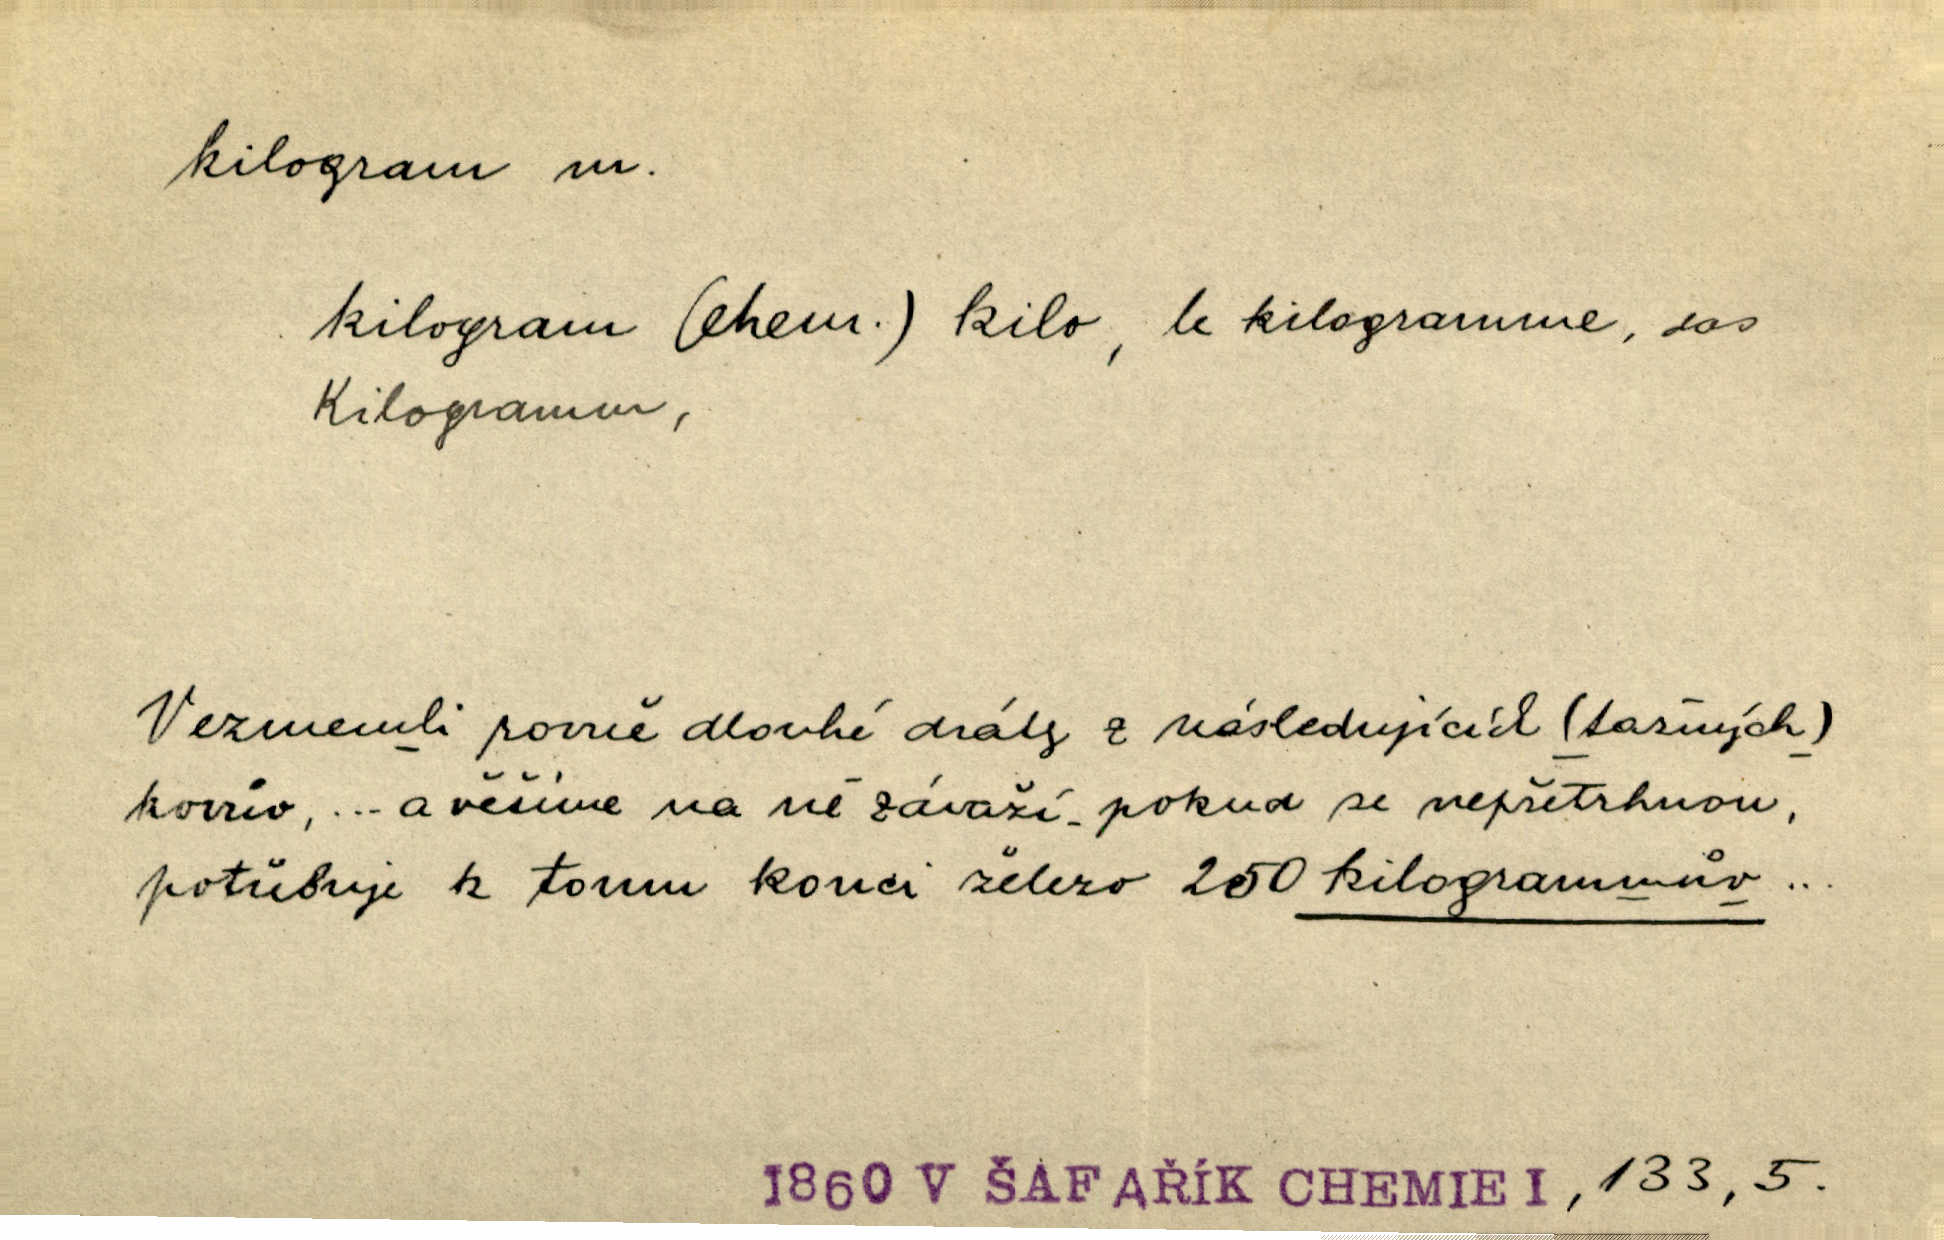 kilogram m.
kilogram (chem.) kilo, le kilogramme, das
Kilogramm,
Vezmemli rovně dlouhé dráty z následujících (tažných)
kovův, ... a věšíme na ně závaží pokud se nepřetrhnou,
potřebuje k tomu konci železo 250 kilogrammův ...
1860 V ŠAFAŘÍK CHEMIE I, 133, 5.